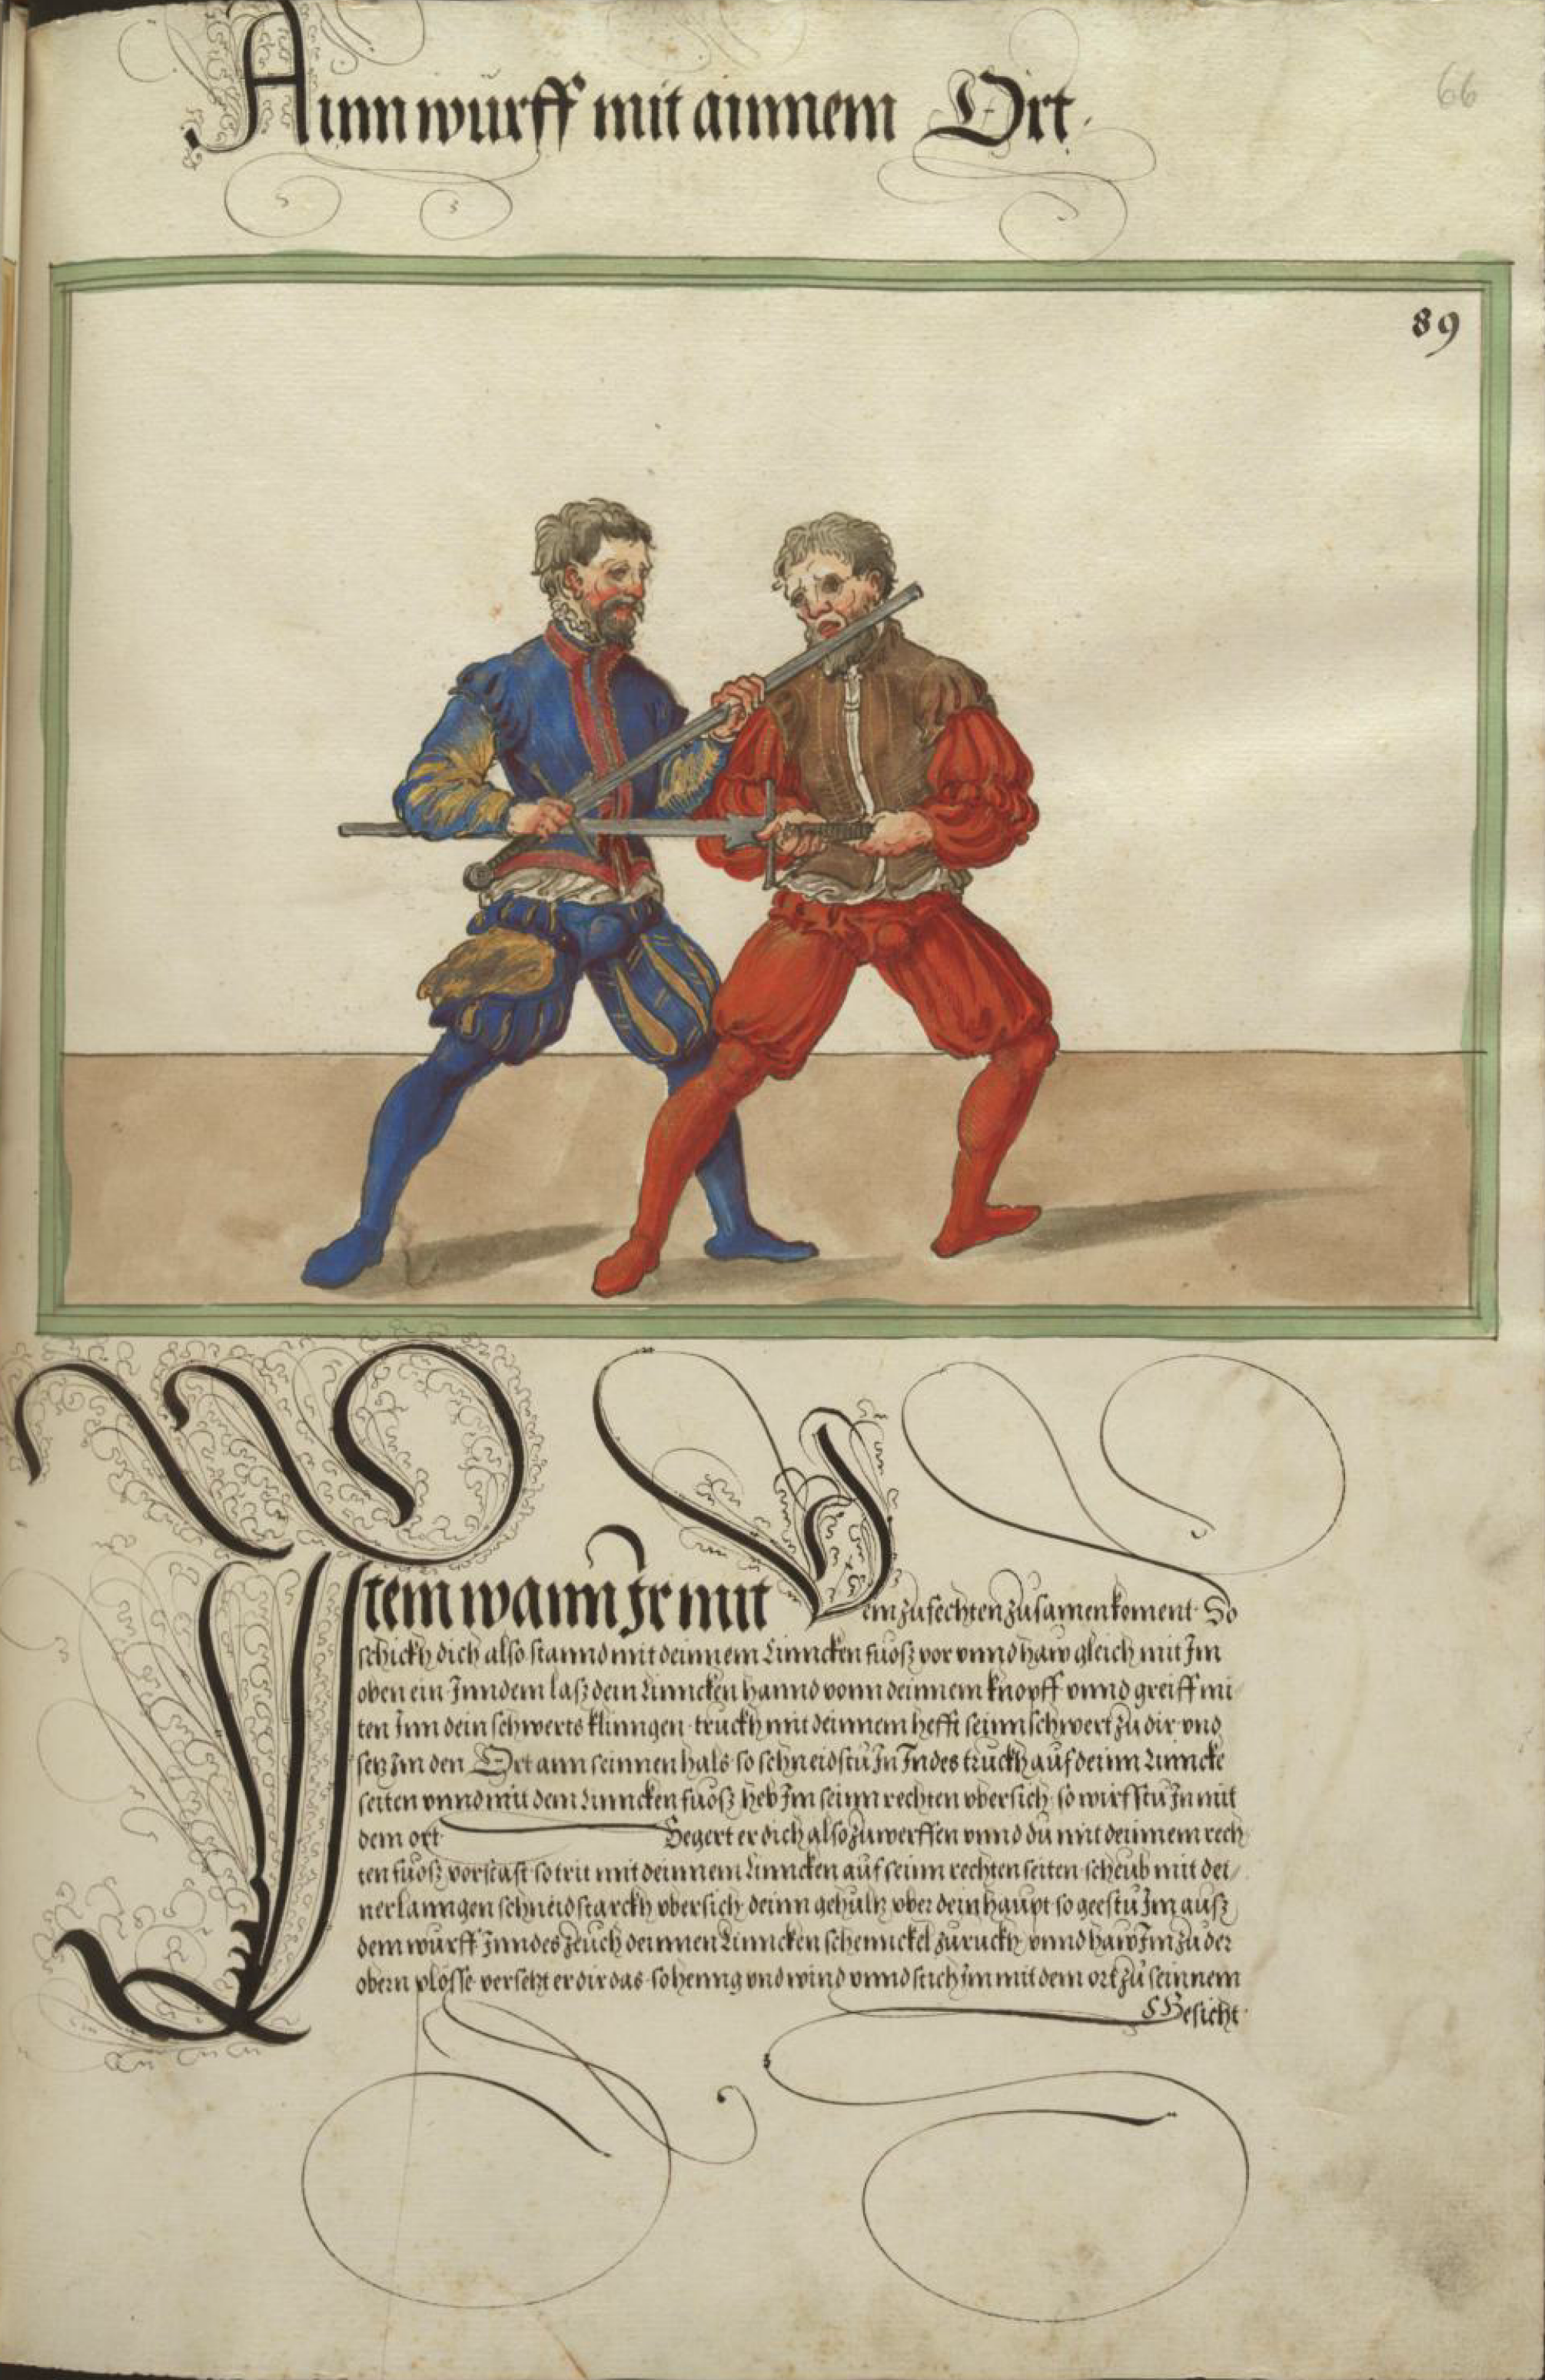 Ainn wurff mit ainnem Ort.
66
89
Item wann Ir mit Dem zufechten zusamen koment. So
schickh dich also stannd mit deinnem Linncken fuosz vor vnnd haw gleich mit Im
oben ein Inndem lasz dein Linncken hannd vonn deinnem knopff vnnd greiff mi
ten Inn dein schwerts klinngen truckh mit deinnem hefft seinn schwert zu dir vnd
setz Im den Ort ann seinnen hals so schneidstu In Indes truckh auf deinn Linncke
seiten vnnd mit dem Linncken fuosz heb Im seinn rechten vbersich so wirfstu In mit
dem ort Begert er dich also zuwerffen vnnd du mit deinnem rech
ten fuosz vorstast so trit mit deinnem Linncken auf seinn rechten seiten scheub mit dei/
ner lanngen schneid starckh vbersich deinn gehultz vber dein haupt so geestu Im ausz
dem wurff Inndes zeuch deinnen Linncken schennckel zuruckh vnnd haw Im zu der
obern plosse versetzt er dir das so henng vnd wind vnnd stich Im mit dem ort zu seinnem
Gesicht.